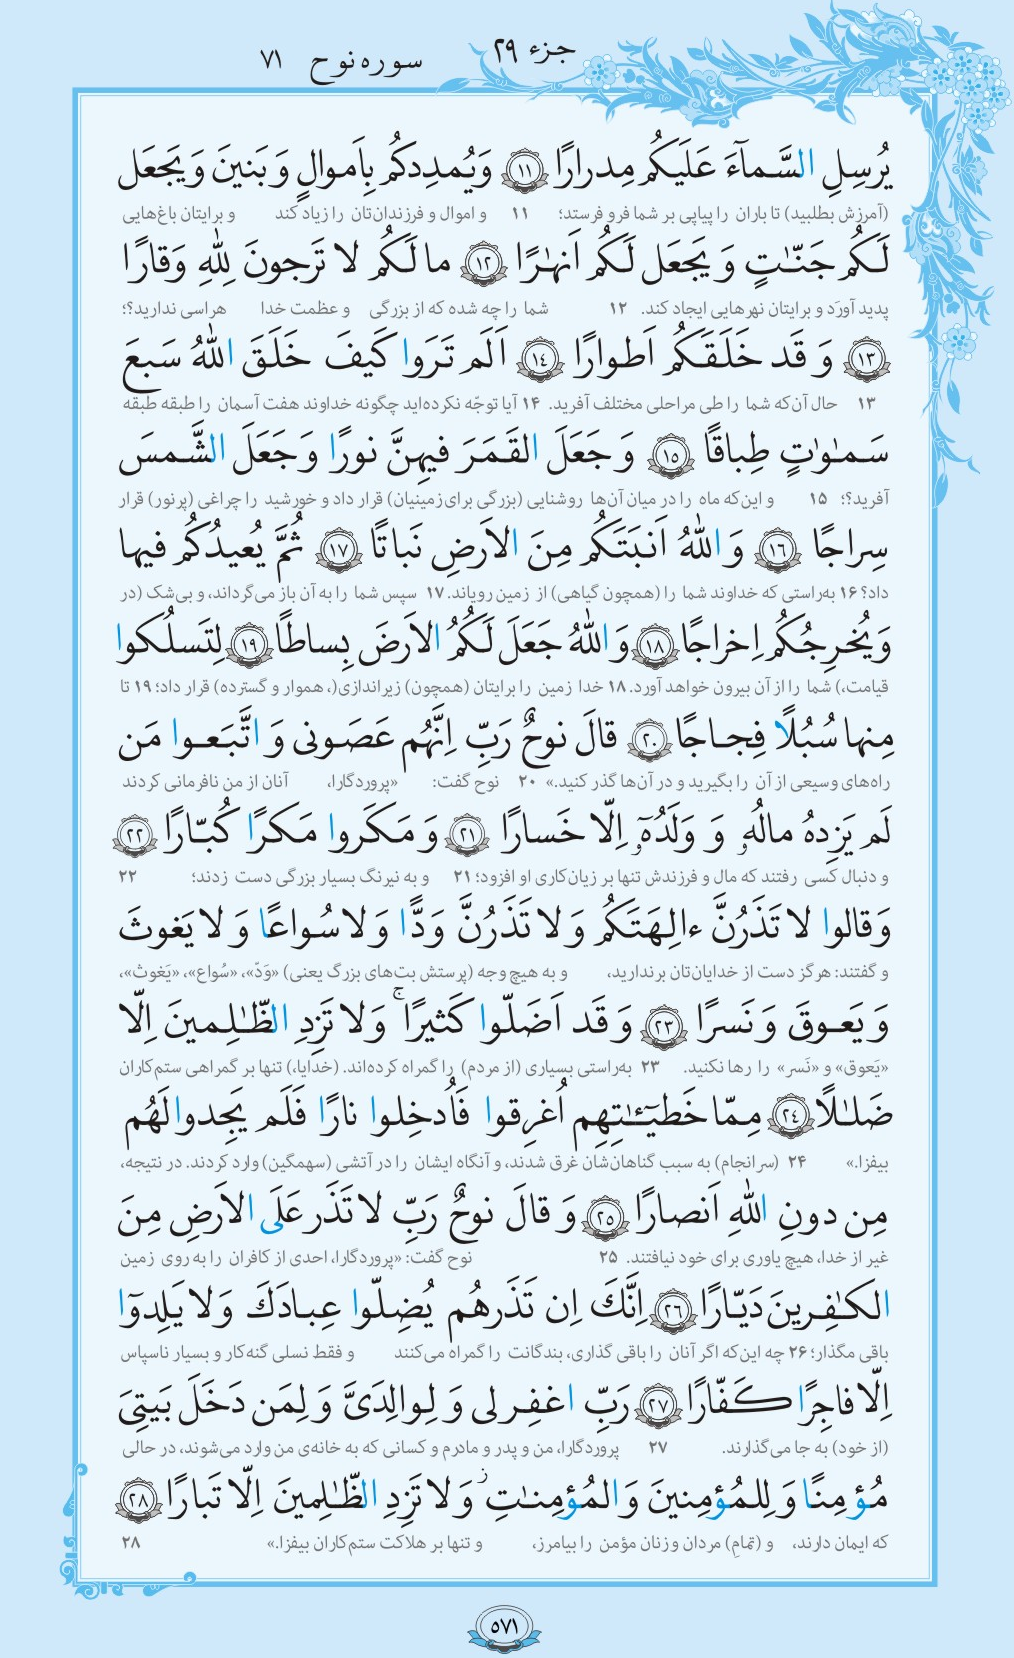 جزء ۲۹
سوره نوح ۷۱
يُرسِلِ السَّماءَ عَلَيكُم مِدرارًا ﴿١١﴾ وَيُمدِدكُم بِاَموالٍ وَ بَنينَ وَ يَجعَل
(آمرزش بطلبید) تا باران را پیاپی بر شما فرو فرستد؛ ۱۱ و اموال و فرزندان‌تان را زیاد کند و برایتان باغ‌هایی
لَكُم جَنّٰتٍ وَ يَجعَل لَكُم اَنهٰرًا ﴿١٢﴾ ما لَكُم لا تَرجونَ لِلّٰهِ وَقارًا
پدید آورَد و برایتان نهرهایی ایجاد کند. ۱۲ شما را چه شده که از بزرگی و عظمت خدا هراسی ندارید؟؛
﴿١٣﴾ وَ قَد خَلَقَكُم اَطوارًا ﴿١٤﴾ اَلَم تَرَوا كَيفَ خَلَقَ اللّٰهُ سَبعَ
۱۳ حال آن‌که شما را طی مراحلی مختلف آفرید. ۱۴ آیا توجّه نکرده‌اید چگونه خداوند هفت آسمان را طبقه طبقه
سَمٰوٰتٍ طِباقًا ﴿١٥﴾ وَ جَعَلَ القَمَرَ فيهِنَّ نورًا وَ جَعَلَ الشَّمسَ
آفرید؟؛ ۱۵ و این‌که ماه را در میان آن‌ها روشنایی (بزرگی برای زمینیان) قرار داد و خورشید را چراغی (پرنور) قرار
سِراجًا ﴿١٦﴾ وَ اللّٰهُ اَنبَتَكُم مِنَ الاَرضِ نَباتًا ﴿١٧﴾ ثُمَّ يُعيدُكُم فيها
داد؟ ۱۶ به‌راستی که خداوند شما را (همچون گیاهی) از زمین رویاند. ۱۷ سپس شما را به آن باز می‌گرداند، و بی‌شک (در
وَ يُخرِجُكُم اِخراجًا ﴿١٨﴾ وَ اللّٰهُ جَعَلَ لَكُمُ الاَرضَ بِساطًا ﴿١٩﴾ لِتَسلُكوا
قیامت،) شما را از آن بیرون خواهد آورد. ۱۸ خدا زمین را برایتان (همچون) زیراندازی(، هموار و گسترده) قرار داد؛ ۱۹ تا
مِنها سُبُلًا فِجاجًا ﴿٢٠﴾ قالَ نوحٌ رَبِّ اِنَّهُم عَصَونى وَ اتَّبَعوا مَن
راه‌های وسیعی از آن را بگیرید و در آن‌ها گذر کنید.» ۲۰ نوح گفت: «پروردگارا، آنان از من نافرمانی کردند
لَم يَزِدهُ مالُهُ وَ وَلَدُهُ اِلّا خَسارًا ﴿٢١﴾ وَ مَكَروا مَكرًا كُبّارًا ﴿٢٢﴾
و دنبال کسی رفتند که مال و فرزندش تنها بر زیان‌کاری او افزود؛ ۲۱ و به نیرنگ بسیار بزرگی دست زدند؛ ۲۲
وَ قالوا لا تَذَرُنَّ ءالِهَتَكُم وَ لا تَذَرُنَّ وَدًّا وَ لا سُواعًا وَ لا يَغوثَ
و گفتند: هرگز دست از خدایان‌تان برندارید، و به هیچ وجه (پرستش بت‌های بزرگ یعنی) «وَدّ»، «سُواع»، «یَغوث»،
وَ يَعوقَ وَ نَسرًا ﴿٢٣﴾ وَ قَد اَضَلّوا كَثيرًا ۚ وَ لا تَزِدِ الظّٰلِمينَ اِلّا
«یَعوق» و «نَسر» را رها نکنید. ۲۳ به‌راستی بسیاری (از مردم) را گمراه کرده‌اند. (خدایا،) تنها بر گمراهی ستم‌کاران
ضَلٰلًا ﴿٢٤﴾ مِمّا خَطيٓـٰٔتِهِم اُغرِقوا فَاُدخِلوا نارًا فَلَم يَجِدوا لَهُم
بیفزا.» ۲۴ (سرانجام) به سبب گناهان‌شان غرق شدند، و آنگاه ایشان را در آتشی (سهمگین) وارد کردند. در نتیجه،
مِن دونِ اللّٰهِ اَنصارًا ﴿٢٥﴾ وَ قالَ نوحٌ رَبِّ لا تَذَر عَلَى الاَرضِ مِنَ
غیر از خدا، هیچ یاوری برای خود نیافتند. ۲۵ نوح گفت: «پروردگارا، احدی از کافران را به روی زمین
الكٰفِرينَ دَيّارًا ﴿٢٦﴾ اِنَّكَ اِن تَذَرهُم يُضِلّوا عِبادَكَ وَ لا يَلِدوٓا
باقی مگذار؛ ۲۶ چه این‌که اگر آنان را باقی گذاری، بندگانت را گمراه می‌کنند و فقط نسلی گنه‌کار و بسیار ناسپاس
اِلّا فاجِرًا كَفّارًا ﴿٢٧﴾ رَبِّ اغفِر لى وَ لِوالِدَىَّ وَ لِمَن دَخَلَ بَيتِىَ
(از خود) به جا می‌گذارند. ۲۷ پروردگارا، من و پدر و مادرم و کسانی که به خانه‌ی من وارد می‌شوند، در حالی
مُؤمِنًا وَ لِلمُؤمِنينَ وَ المُؤمِنٰتِ ز وَ لا تَزِدِ الظّٰلِمينَ اِلّا تَبارًا ﴿٢٨﴾
که ایمان دارند، و (تمامِ) مردان و زنان مؤمن را بیامرز، و تنها بر هلاکت ستم‌کاران بیفزا.» ۲۸
۵۷۱